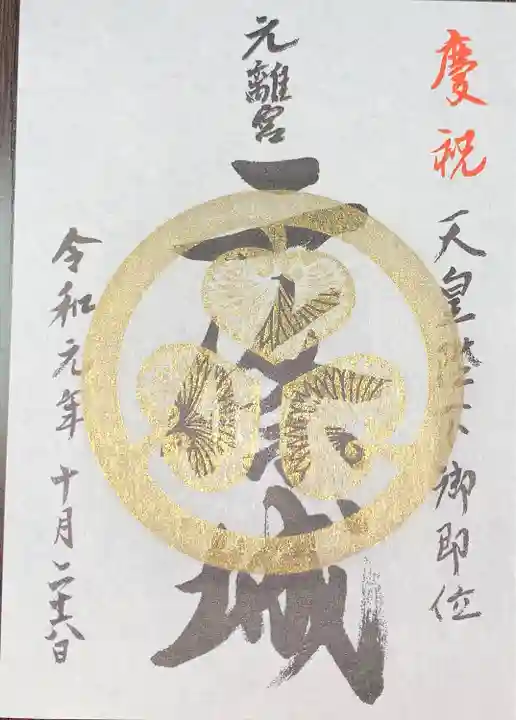 慶祝
天皇陛下御即位
元離宮
二條城
令和元年 十月二十六日